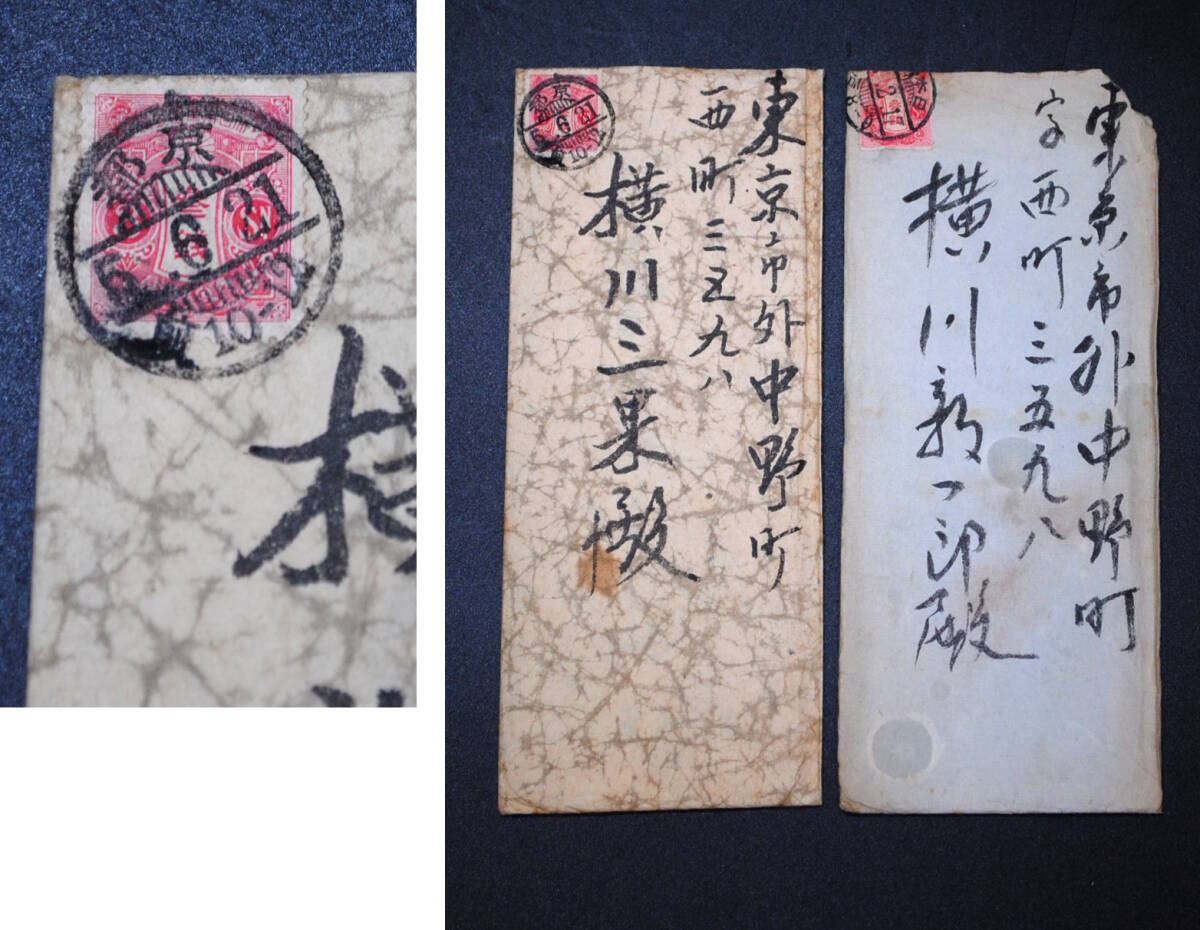 京都
6.21
10-12
東京市外中野町
西町三五九八
横川三果殿
東京市外中野町
字西町三五九八
横川毅一郎殿